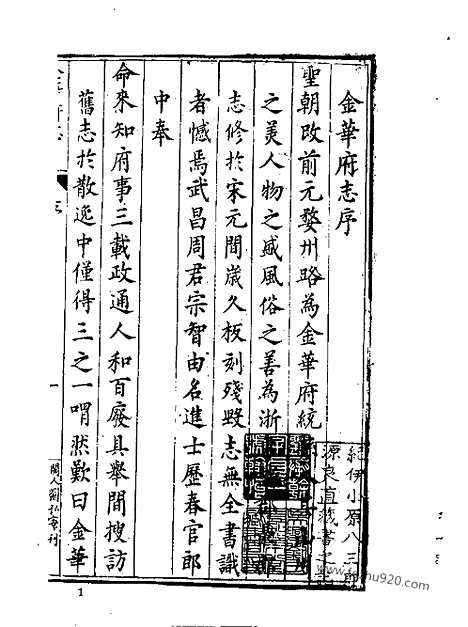 金華府志序
聖朝改前元婺州路為金華府統
之美人物之盛風俗之善為浙
志修於宋元間歲久板刻殘毀志無全書識
者憾焉武昌周君宗智由名進士歷春官郎
中奉
命來知府事三載政通人和百廢具舉間搜訪
舊志於散逸中僅得三之一喟然歎曰金華
紀伊小原八三郎
源良直藏書之記
1